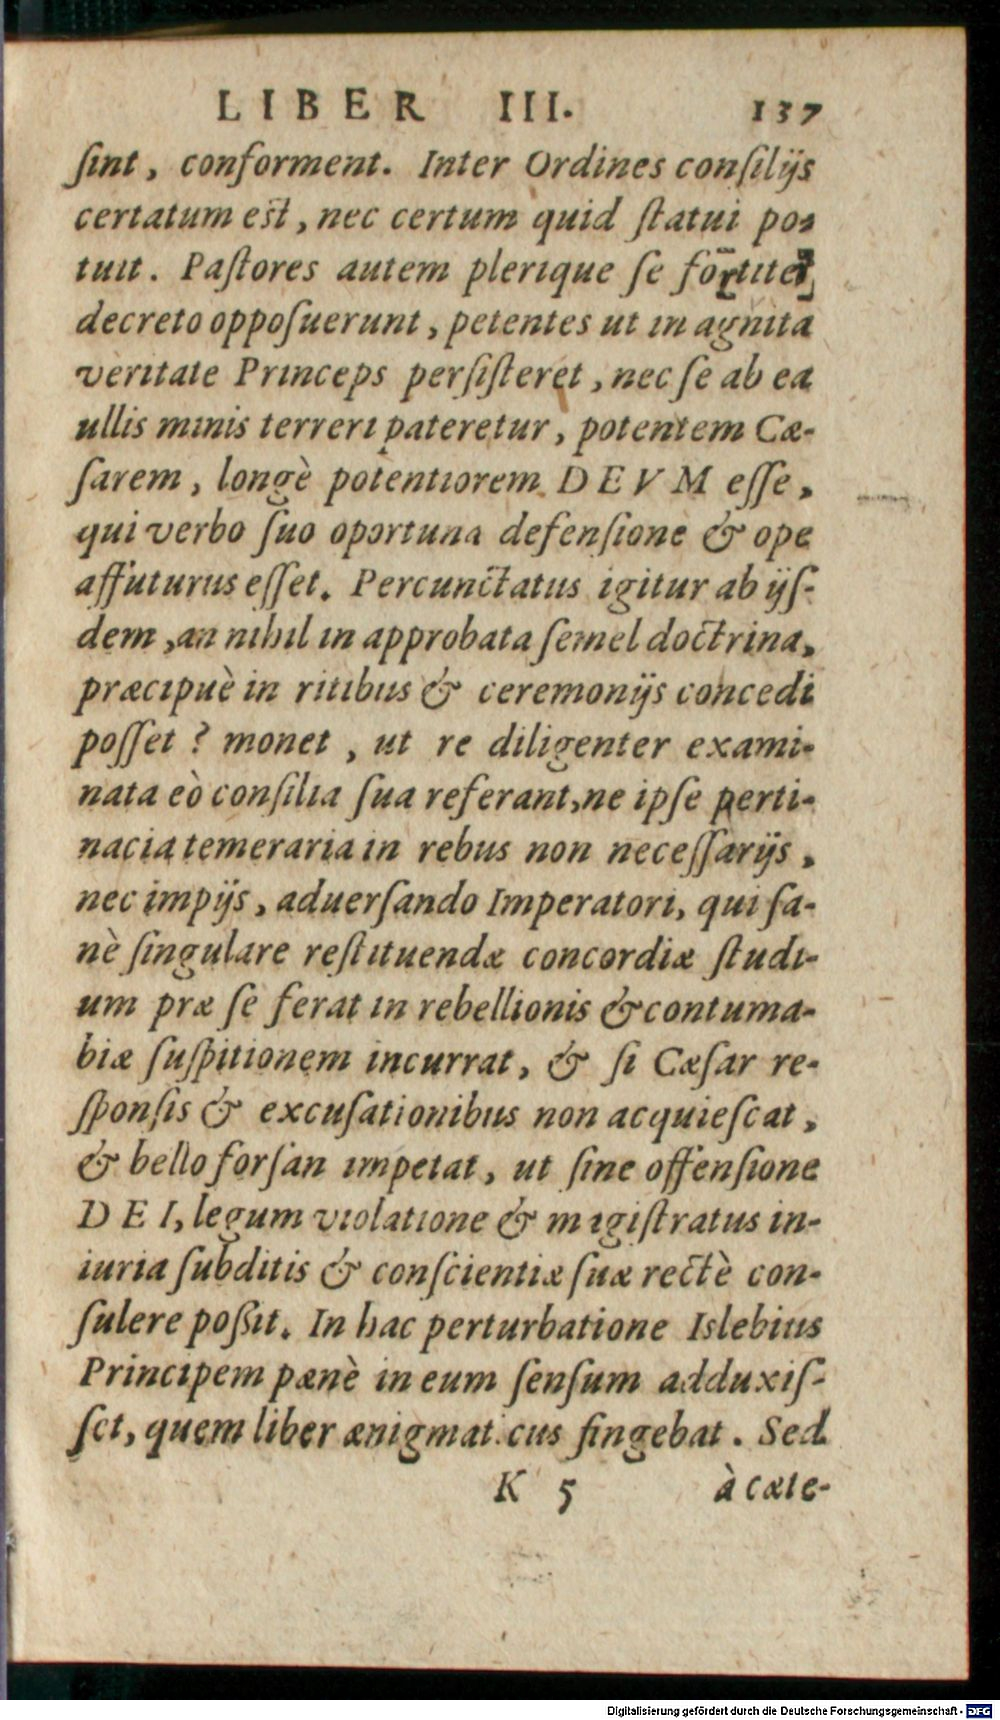 LIBER III. 137
ſint, conforment. Inter Ordines conſilijs
certatum eſt, nec certum quid ſtatui po-
tuit. Paſtores autem plerique ſe fortiter
decreto oppoſuerunt, petentes ut in agnita
veritate Princeps perſiſteret, nec ſe ab ea
ullis minis terreri pateretur, potentem Cæ-
ſarem, longè potentiorem DEVM eſſe,
qui verbo ſuo oportuna defenſione & ope
affuturus eſſet. Percunctatus igitur ab ijſ-
dem, an nihil in approbata ſemel doctrina,
præcipuè in ritibus & ceremonijs concedi
poſſet? monet, ut re diligenter exami-
nata eò conſilia ſua referant, ne ipſe perti-
nacia temeraria in rebus non neceſſarijs,
nec impijs, aduerſando Imperatori, qui ſa-
nè ſingulare reſtituendæ concordiæ ſtudi-
um præ ſe ferat in rebellionis & contuma-
biæ ſuſpitionem incurrat, & ſi Cæſar re-
ſponſis & excuſationibus non acquieſcat,
& bello forſan impetat, ut ſine offenſione
DEI, legum violatione & magiſtratus in-
iuria ſubditis & conſcientiæ ſuæ rectè con-
ſulere poßit. In hac perturbatione Islebius
Principem pænè in eum ſenſum adduxiſ-
ſet, quem liber ænigmaticus fingebat. Sed
K 5 à cæte-
Digitalisierung gefördert durch die Deutsche Forschungsgemeinschaft - DFG